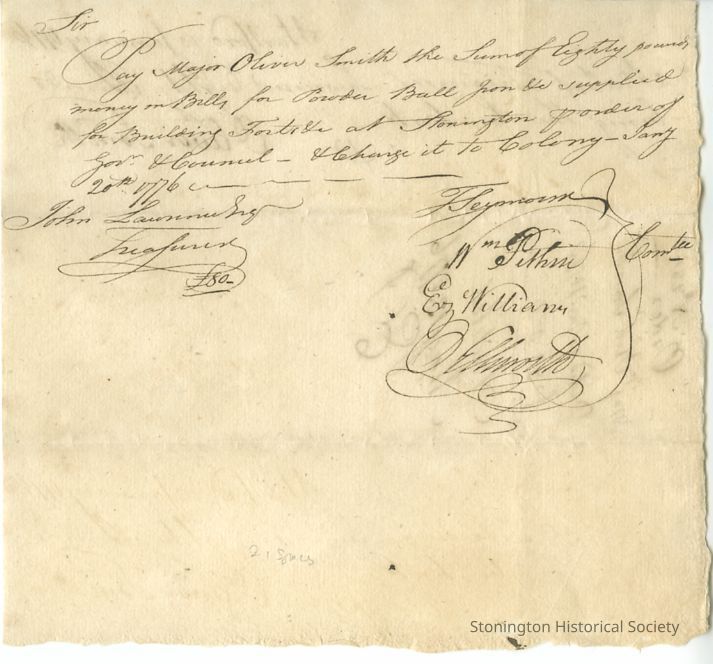 Sir
Pay Major Oliver Smith the Sum of Eighty pounds
money in Bills for Powder Ball Iron &c supplied
for Building Forts &c at Stonington p order of
Govr. & Councel – & Charge it to Colony – Jany
20th. 1776
John Lawrence Esq
Treasurer
£80–
T Seymour
Wm Pitkin
Ez Williams
O Ellsworth
Comtee
Stonington Historical Society